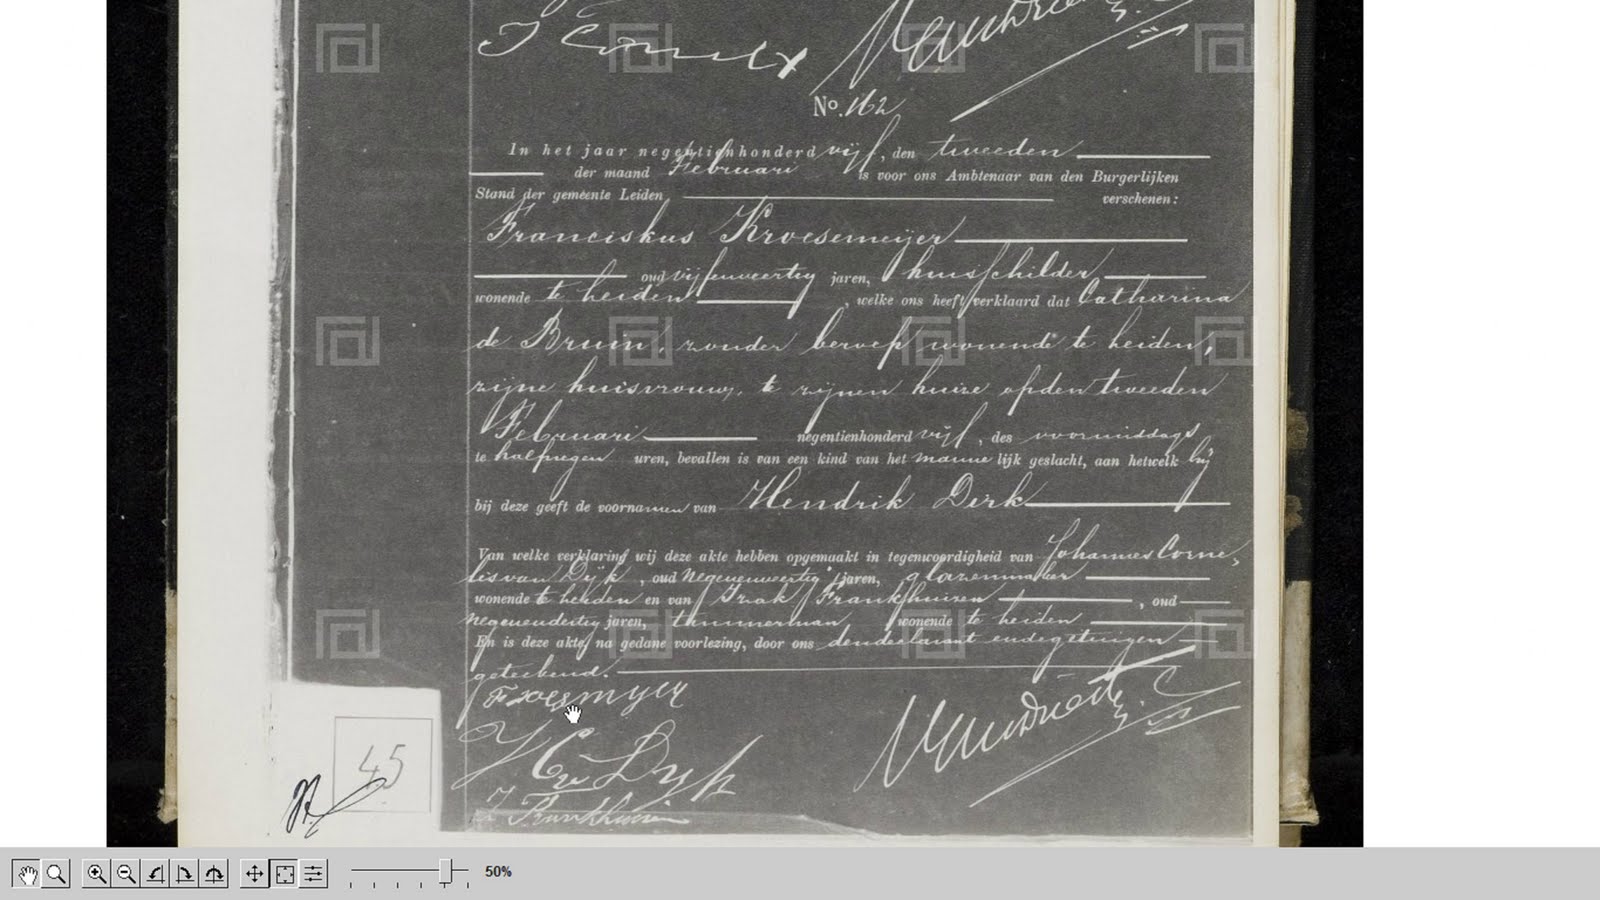 No. 162
In het jaar negentienhonderd vijf, den tweeden
der maand Februari is voor ons Ambtenaar van den Burgerlijken
Stand der gemeente Leiden verschenen:
Franciskus Kroesemeijer
oud vijfenveertig jaren, huisschilder
wonende te Leiden, welke ons heeft verklaard dat Catharina
de Bruin, zonder beroep wonende te Leiden,
zijne huisvrouw, te zijnen huize op den tweeden
Februari negentienhonderd vijf, des voormiddags
te half negen uren, bevallen is van een kind van het mannelijk geslacht, aan hetwelk hij
bij deze geeft de voornamen van Hendrik Dirk
Van welke verklaring wij deze akte hebben opgemaakt in tegenwoordigheid van Johannes Corne-
lis van Dijk, oud negenenveertig jaren, glazenmaker
wonende te Leiden en van Izak Frankhuisen, oud
negenendertig jaren, timmerman wonende te Leiden
En is deze akte, na gedane voorlezing, door ons den declarant en de getuigen
geteekend.
J C v Dyk
45
50%